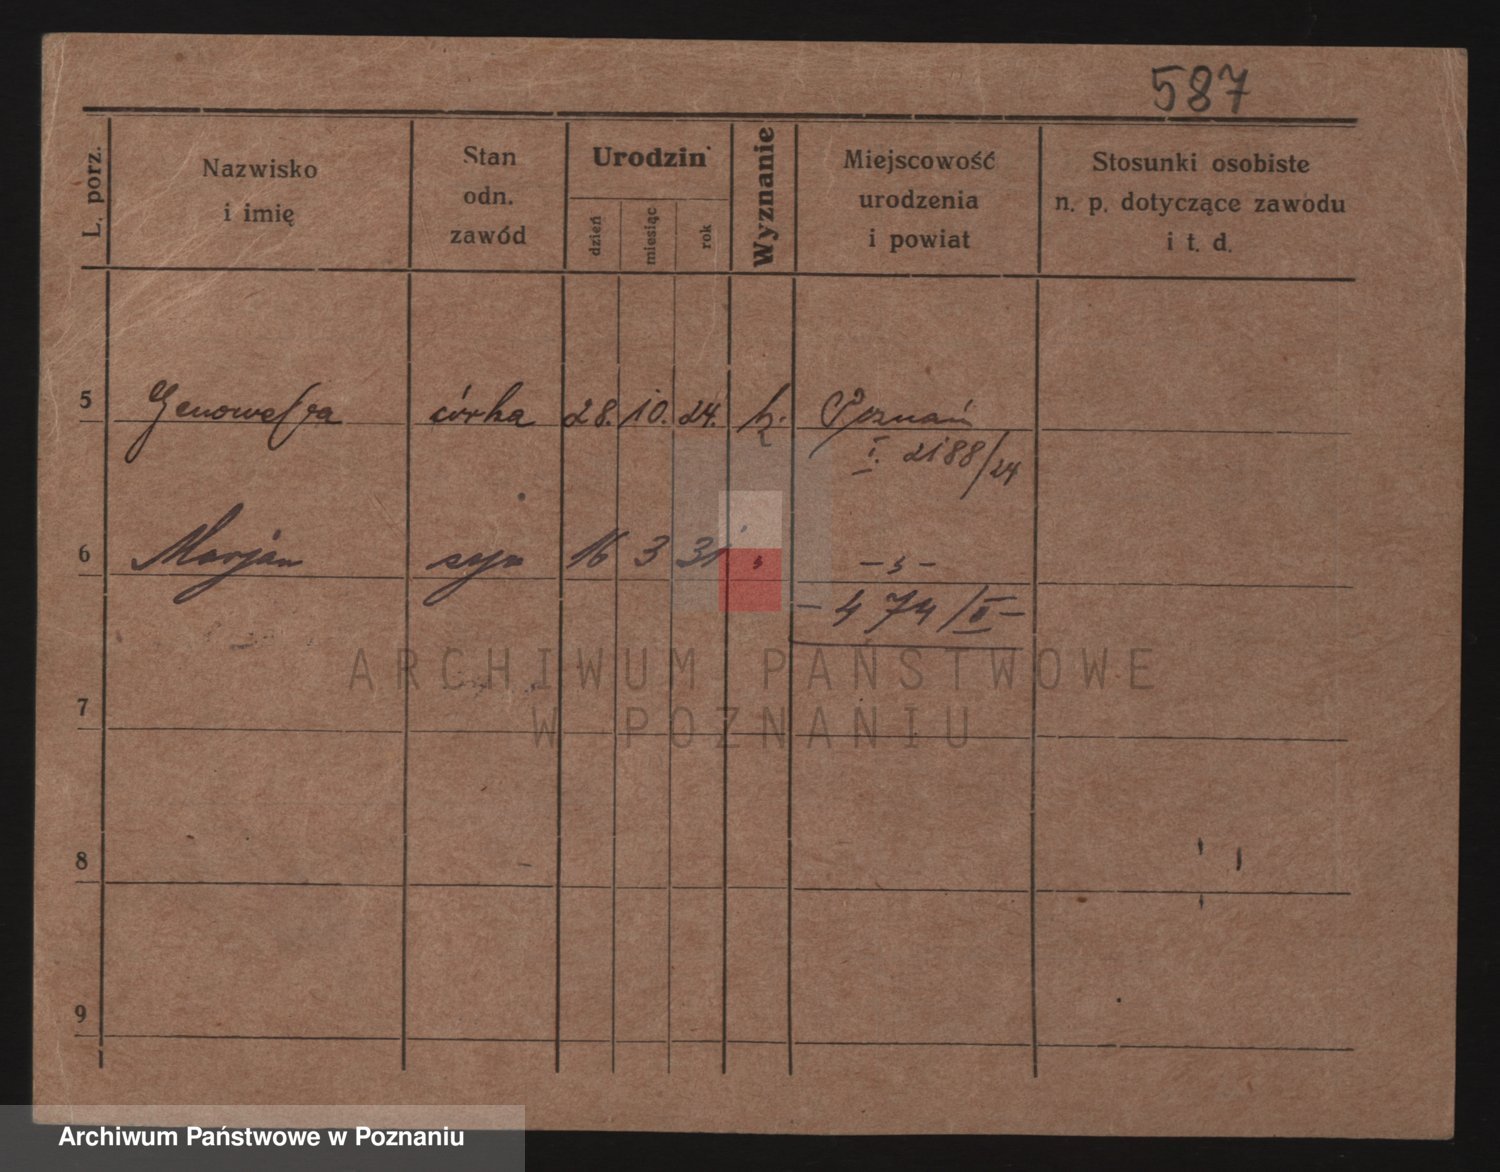 587
L. porz.
Nazwisko
i imię
Stan
odn.
zawód
Urodzin
dzień
miesiąc
rok
Wyznanie
Miejscowość
urodzenia
i powiat
Stosunki osobiste
n. p. dotyczące zawodu
i t. d.
5 Genowefa córka 28. 10. 24. k. Poznań
I. 2188/24
6 Marjan syn 16 3 31 " -"-
- 474/II -
ARCHIWUM PAŃSTWOWE
W POZNANIU
7
8
9
Archiwum Państwowe w Poznaniu